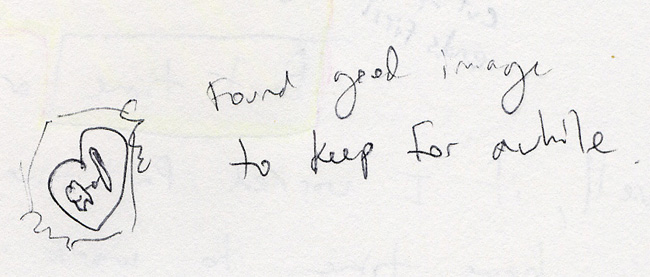 Found good image
to keep for awhile.